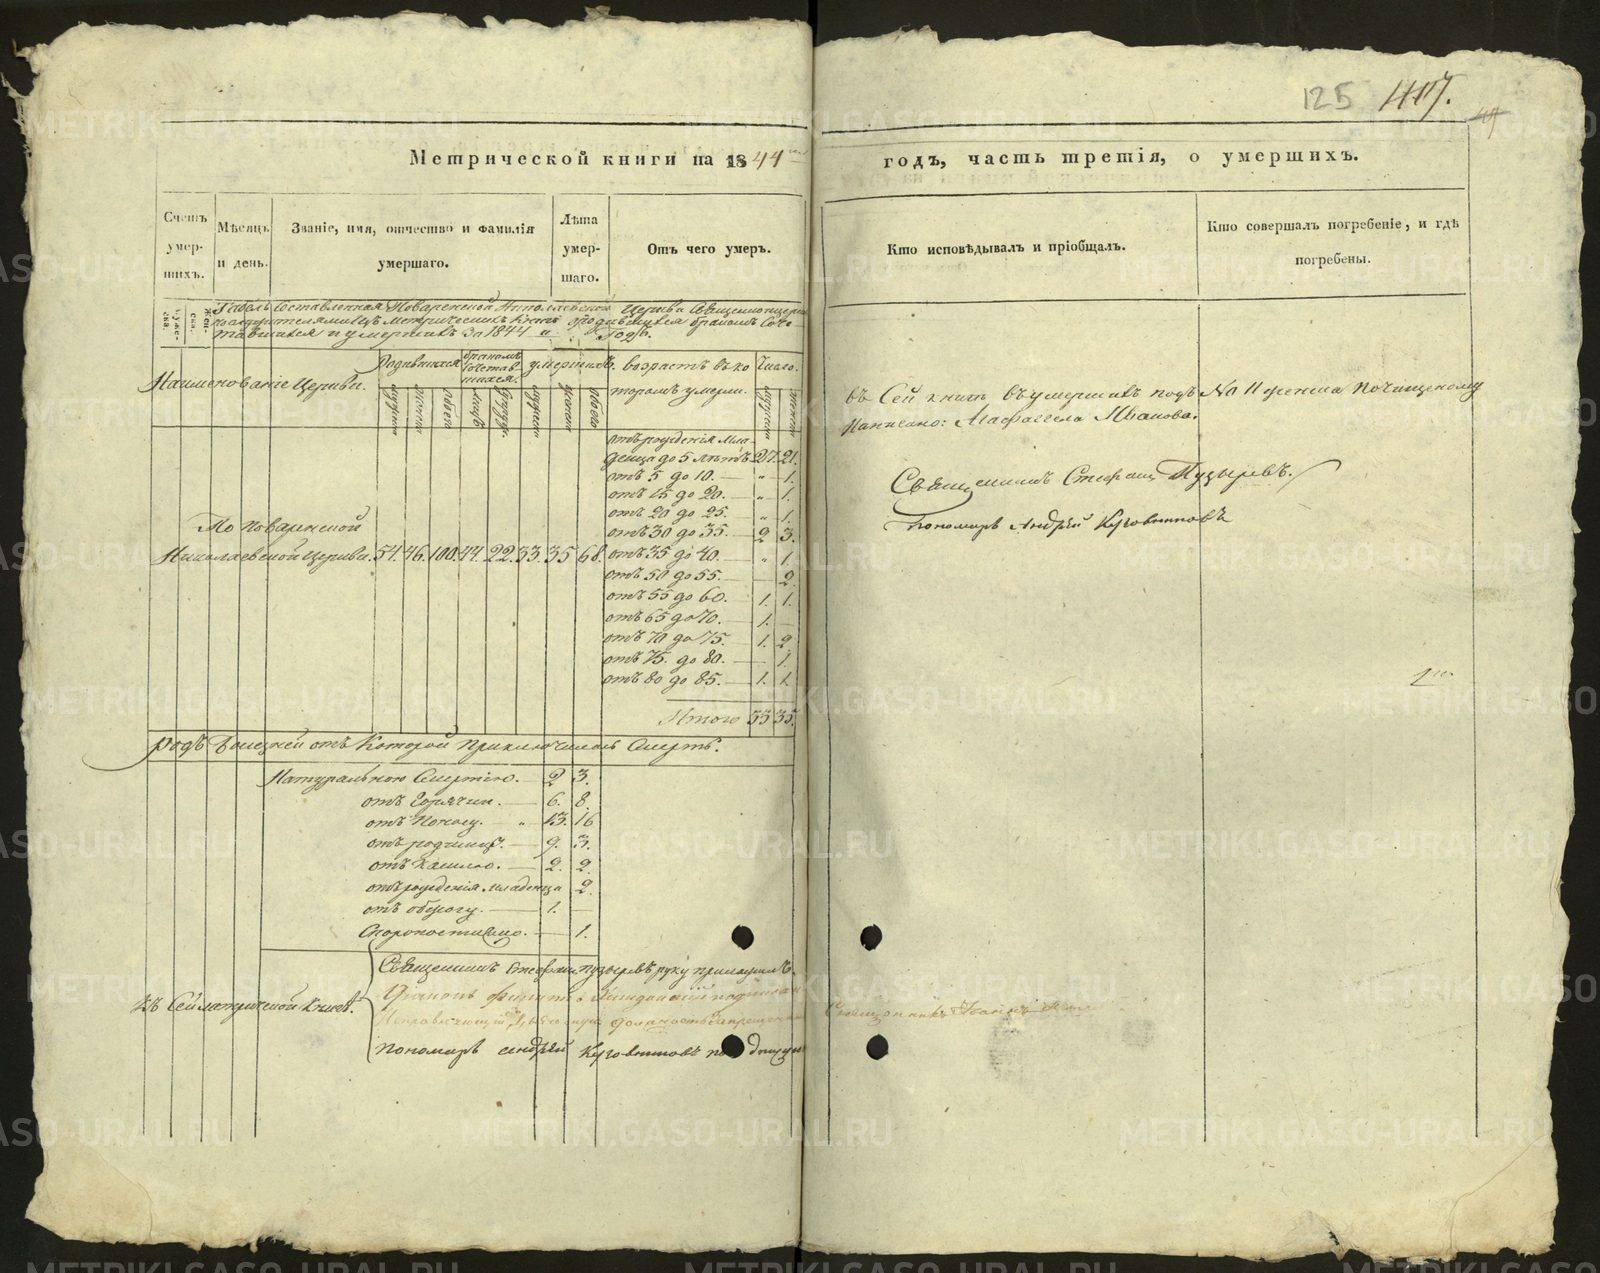 125 407.
Метрической книги на 1844 годъ, часть третія, о умершихъ.
Счетъ умер-шихъ.
Мѣсяцъ и день.
Званіе, имя, отчество и фамилія умершаго.
Лѣта умер-шаго.
Отъ чего умеръ.
Кто исповѣдывалъ и пріобщалъ.
Кто совершалъ погребеніе, и гдѣ погребены.
Муже-ска.
Жен-ска.
Табель составленная Поваренской Николаевской Церкви Священноцерко
служителями изъ Метрическихъ книгъ родившихся бракомъ сочо-
тавшихся и умершихъ за 1844 й Годъ.
Наименованіе Церкви.
Родившихся
бракомъ сочетав-шихся.
умершихъ.
возрастъ въ ко
торомъ умерли.
Число.
По Поваренской
Николаевской Церкви. 54. 46. 100. 44. 22. 33. 35 68.
отъ рожденія мла-
денца до 5 лѣтъ 27. 21.
отъ 5 до 10. — „ 1.
отъ 15 до 20. — „ 1.
отъ 20 до 25. „ 1.
отъ 30 до 35. 2 3.
отъ 35 до 40. — „ 1.
отъ 50 до 55. — 2.
отъ 55 до 60. 1. 1.
отъ 65 до 70. 1. —
отъ 70 до 75. 1. 2.
отъ 75. до 80. — 1.
отъ 80 до 85. — 1. 1.
Итого 33 35.
родъ болезней отъ Которой приключилась Смерть.
Натуральною Смертію. — 2 3.
отъ Горячки. — 6. 8.
отъ Поносу. — „ 13. 16
отъ родимца. — 9. 3.
отъ Кашлю. — 2. 2.
отъ рожденія младенца 2.
отъ обжогу. — 1. —
Скоропостижно. — 1.
Къ Сей метрической Книгѣ.
Священникъ Стефанъ Пузыревъ руку приложилъ.
пономарь Андрей Кузовниковъ подпи
въ Сей книгѣ въ умершихъ подъ № 11 женска по чищеному
написано: Агафоггела Иванова.
Священникъ Стефанъ Пузыревъ.
Пономарь Андрей Кузовниковъ
METRIKI.GASO-URAL.RU